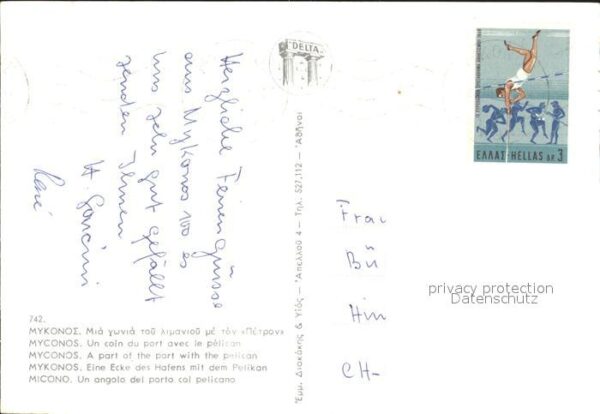 Herzliche Feriengrüsse
aus Mykonos wo es
uns sehr gut gefällt
senden Ihnen
H.
René
742.
ΜΥΚΟΝΟΣ. Μιά γωνιά τοῦ λιμανιοῦ μέ τόν «Πέτρον»
MYCONOS. Un coin du port avec le pélican
MYCONOS. A part of the port with the pelican
MYKONOS. Eine Ecke des Hafens mit dem Pelikan
MICONO. Un angolo del porto col pelicano
DELTA
Ἐμμ. Διακάκης & Υἱός - Ἀπελλοῦ 4 - Τηλ. 527.112 - Ἀθῆναι
ΕΛΛΑΣ·HELLAS ΔΡ 3
Frau
Bü
Hin
CH-
privacy protection
Datenschutz